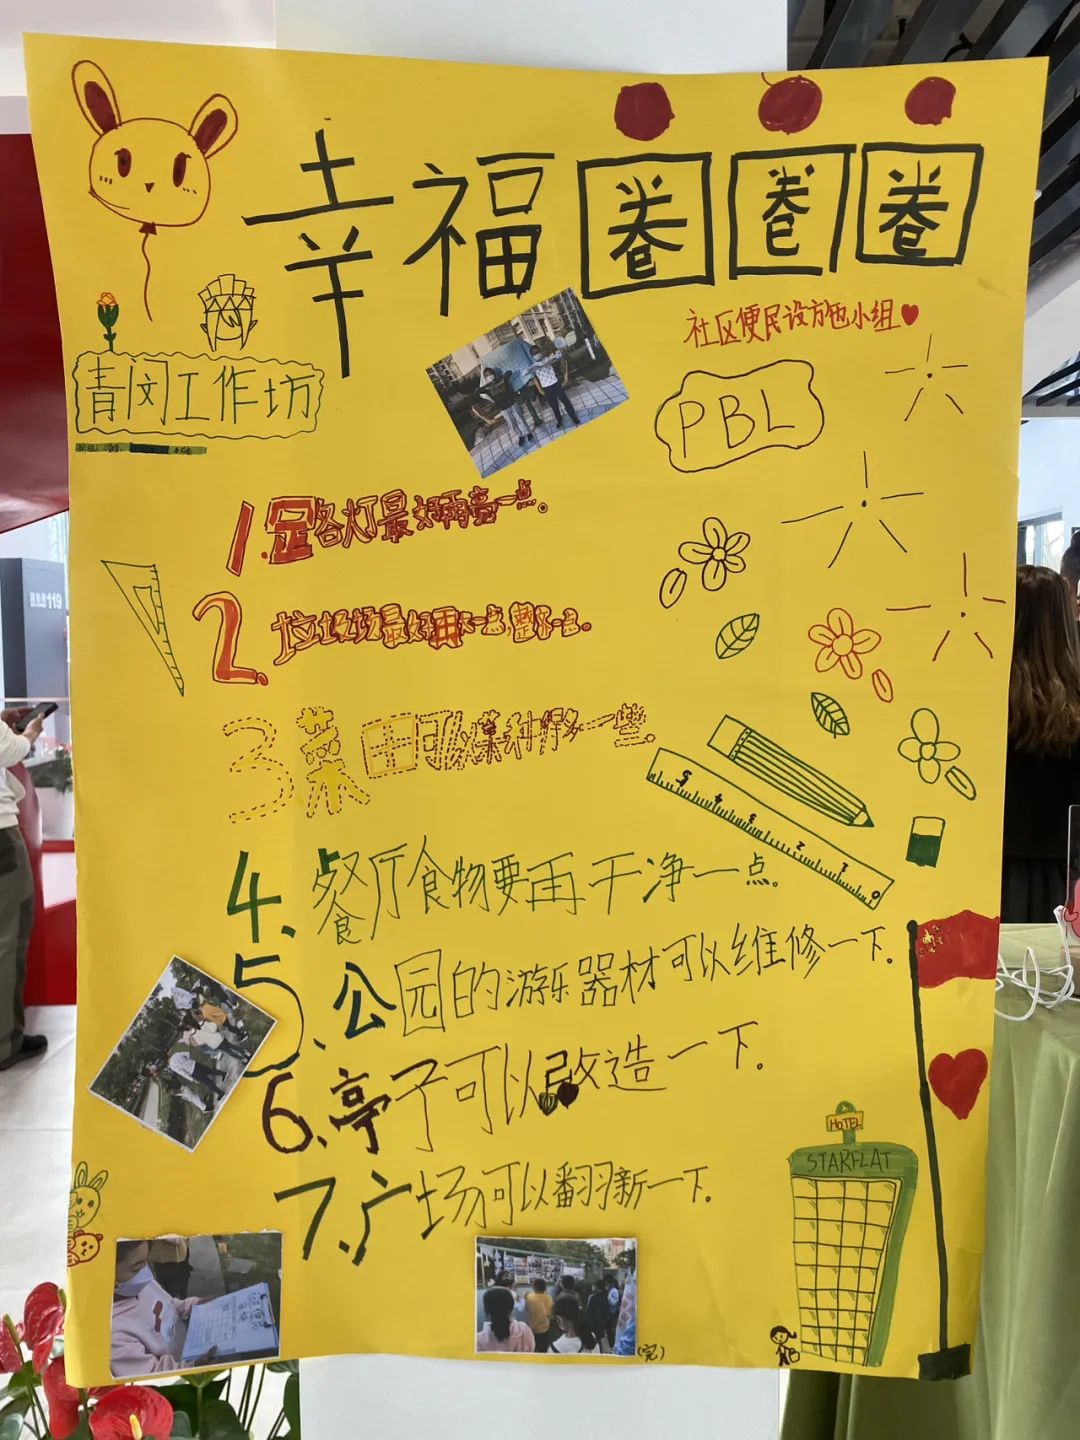 幸福圈圈圈
社区便民设施小组
青闵工作坊
PBL
1.足各灯最好再亮一点。
2.垃圾场最好再大一点,整齐一点。
3菜田可以菜种得多一些.
4、餐厅食物要再干净一点.
5、公园的游乐器材可以维修一下.
6、亭子可以改造一下.
7、广场可以翻新一下.
5 4 3 2 1 0
HOTEL
STARFLAT
(完)